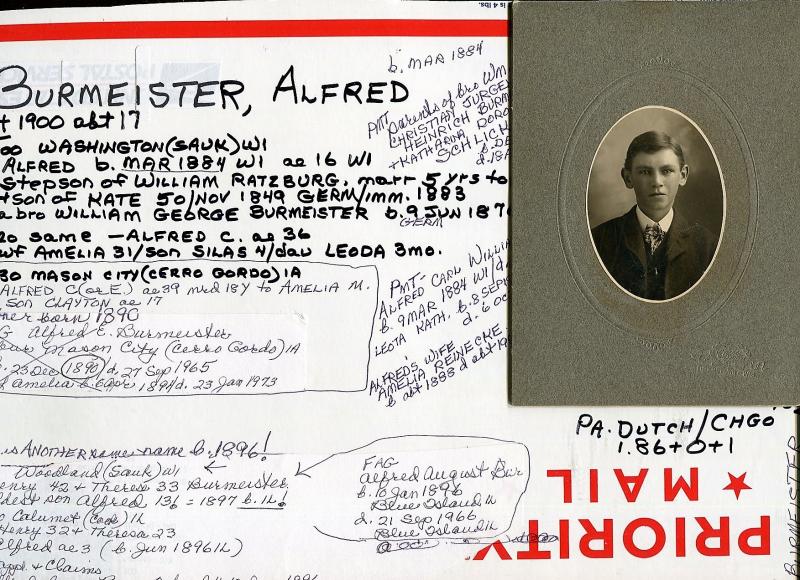 is 4 lbs.
BURMEISTER, ALFRED
+ 1900 abt 17
00 WASHINGTON (SAUK) WI
ALFRED b. MAR 1884 WI ae 16 WI
Stepson of WILLIAM RATZBURG. marr 5 yrs to
+ son of KATE 50/NOV 1849 GERM/imm. 1883
a bro WILLIAM GEORGE BURMEISTER b. 9 JUN 187
GERM
20 same — ALFRED C. ae 36
wf AMELIA 31/son SILAS 4/dau LEODA 3mo.
30 MASON CITY (CERRO GORDO) IA
ALFRED C (or E.) ae 39 mrd 18Y to AMELIA M.
son CLAYTON ae 17
born 1890
G Alfred E. Burmeister
Mason City (Cerro Gordo) IA
. 23 Dec 1890/d. 27 Sep 1965
Amelia b. 1894/d. 23 Jan 1973
b. MAR 1884
PMT
parents of bro WM
CHRISTIAN JURGE
HEINRICH BURM
+ KATHARINA DORO
SCHLICH
b. DE
d. 18
PMT-
ALFRED CARL WILLIA
b. 9 MAR 1884 WI/d.
LEOTA KATH. b. 8 SEP
d. 6 OC
ALFREDS WIFE
AMELIA REINECKE
b abt 1888 d abt 19
is ANOTHER same name b. 1896!
Woodland (Sauk) WI
enry 42 + Therese 33 Burmeister
dest son Alfred 13! = 1897 b. IL!
o Calumet (Cook) IL
Henry 32 + Theresa 23
Alfred ae 3 (b. Jun 1896 IL)
appl. + Claims
FAG
Alfred August Bur
b. 10 Jan 1896
Blue Island IL
d. 21 Sep 1966
Blue Island IL
PA. DUTCH/CHGO
1.86+0+1
PRIORITY
MAIL
BURMEISTER
POSTAL SERV